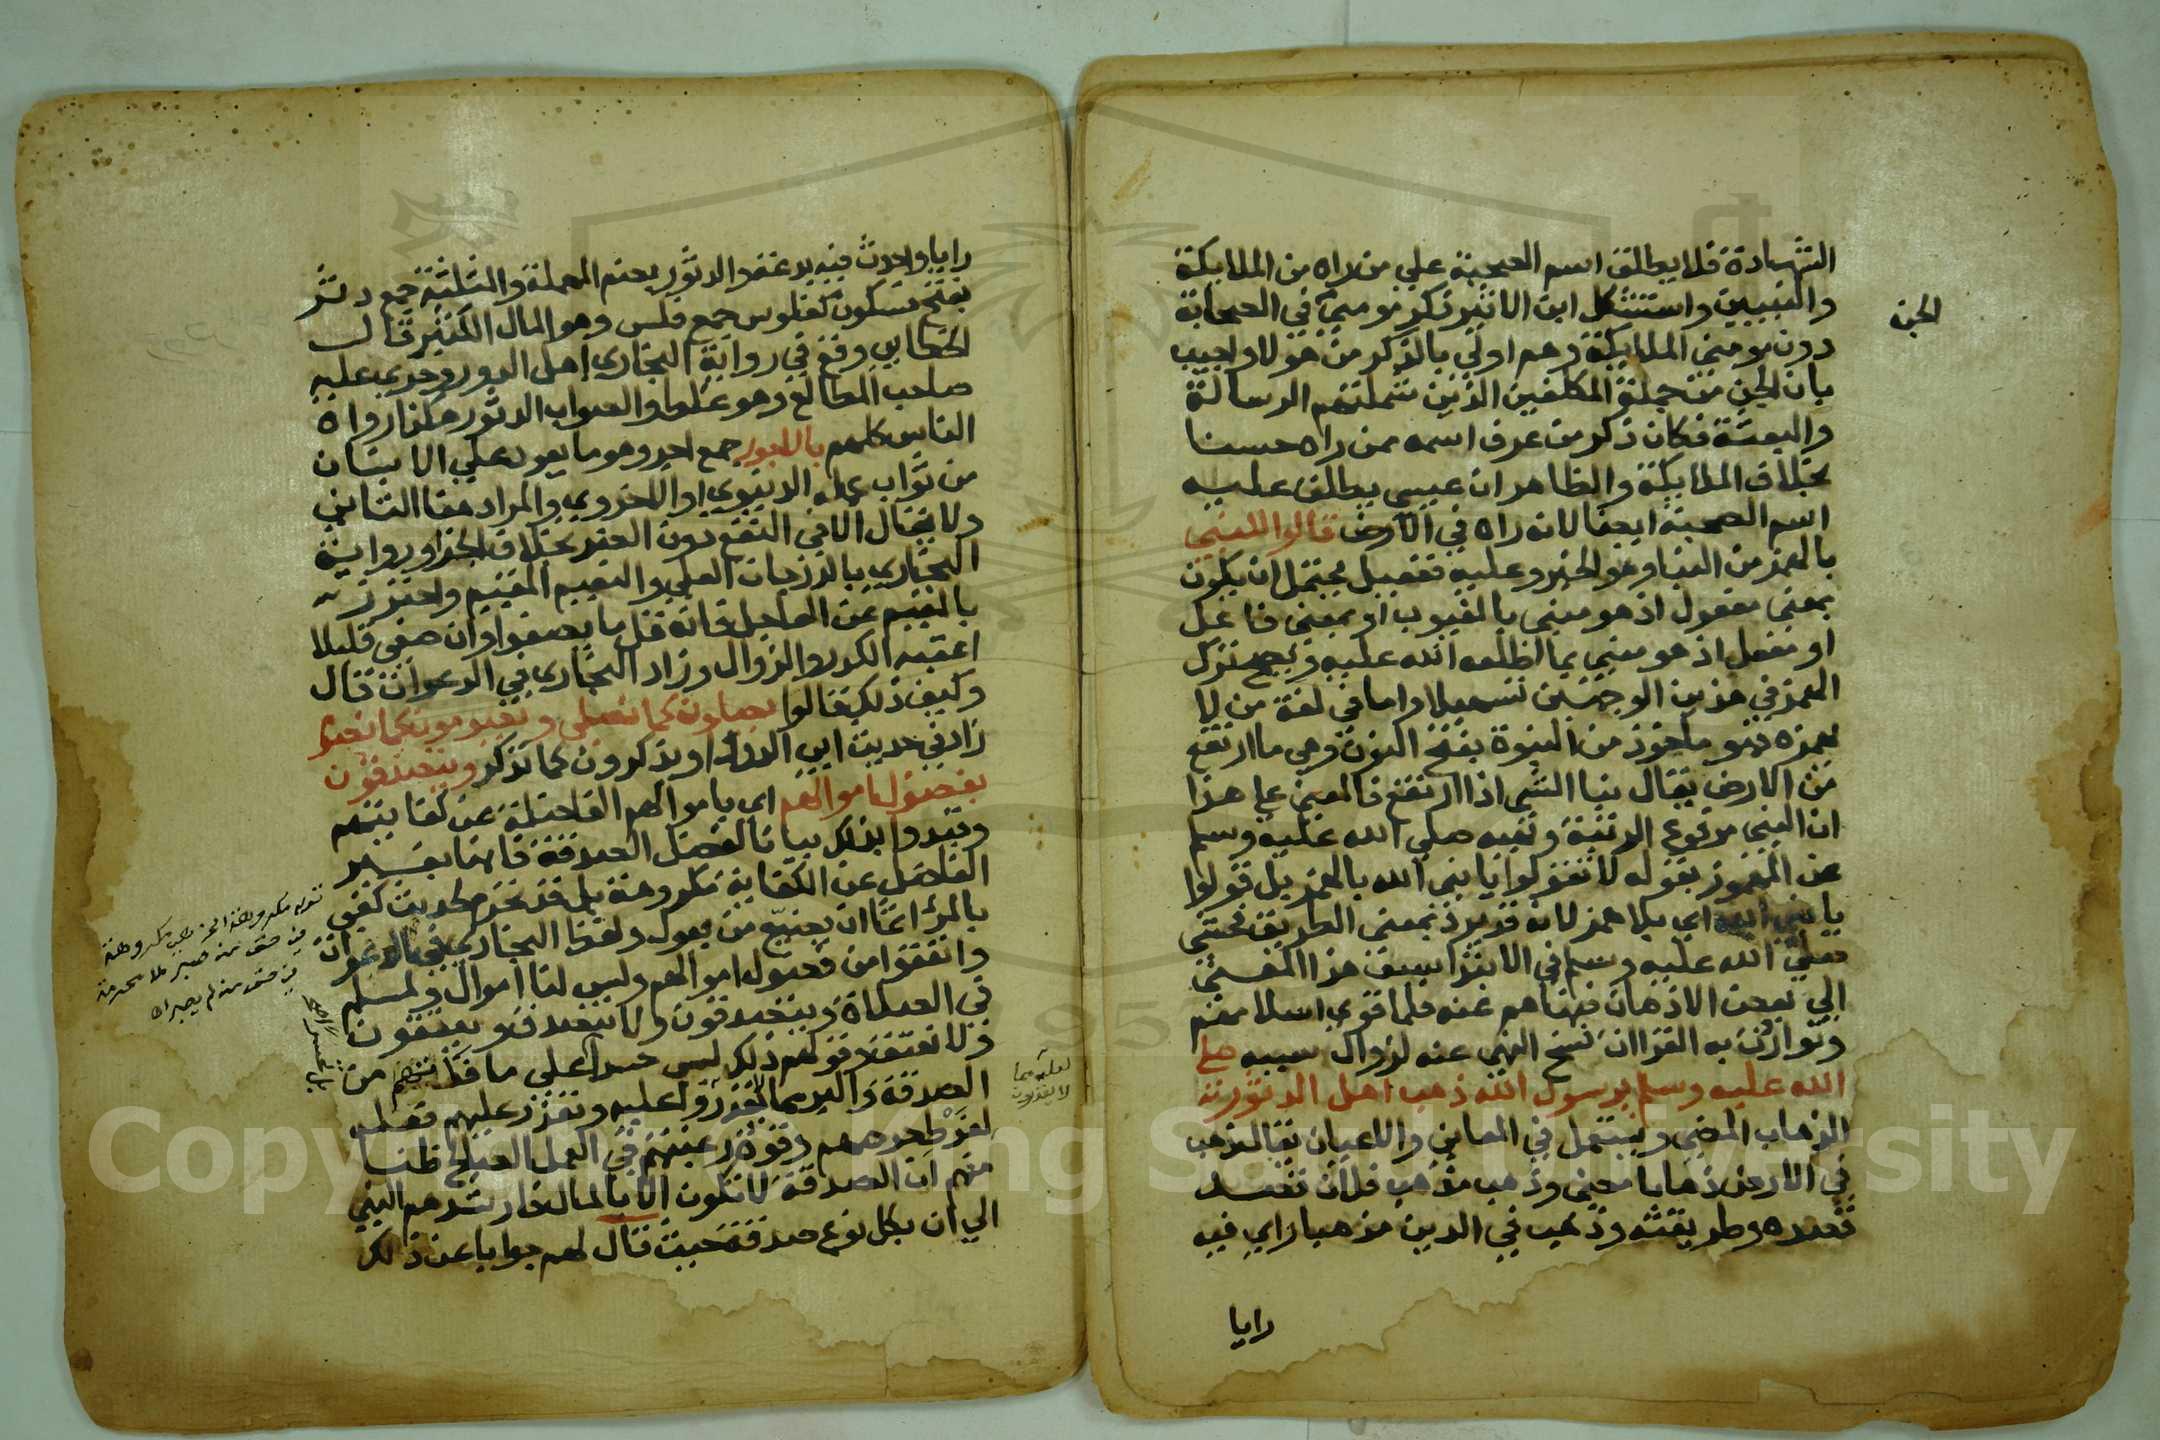 الشهادة فلا يطلق اسم الصحبة علي من راه من الملايكة
والنبيين واستشكل ابن الاثير ذكر مومني في الصحابة
الجن
دون مومني الملايكة وهم اولي بالذكر من هولا واجيب
بان الجن من جملة المكلفين الذين شملتهم الرسالة
والبعثة فكان ذكر من عرف اسمه ممن راه حسنا
بخلاف الملايكة والظاهر ان عيسي يطلق عليه
اسم الصحبة ايضا لانه راه في الارض قالوا للنبي
بالهمز من النبا وهو الخبر وعليه فعيل يحتمل ان يكون
بمعني مفعول اذ هو منبي بالغيوب او بمعني فاعل
او مفعل اذ هو منبي بما اطلعه الله عليه ويصح ترك
الهمز في هذين الوجهين تسهيلا واما في لغة من لا
يهمزه فهو ماخوذ من النبوة بفتح النون وهي ما ارتفع
من الارض يقال نبا الشي اذا ارتفع فالمعني علي هذا
ان النبي مرفوع الرتبة ونهيه صلي الله عليه وسلم
عن المهموز بقوله لا تقولوا يا نبي الله بالهمز بل قولوا
يا نبي الله اي بلا همز لانه قد يرد بمعني الطريد فخشي
صلي الله عليه وسلم في الابتدا سبق هذا المعني
الي بعض الاذهان فنهاهم عنه فلما قوي اسلامهم
وتواترت به القراان نسخ النهي عنه لزوال سببه صلي
الله عليه وسلم يرسول الله ذهب اهل الدثور من
الذهاب المضي ويستعمل في المعاني والاعيان يقال ذهب
في الارض ذهابا مضي وذهب مذهب فلان قصد
قصده وطريقته وذهب في الدين مذهبا راي فيه
رايا
رايا واحدث فيه بدعة والدثور بضم المهملة والمثلثة جمع دثر
بفتح فسكون كفلوس جمع فلس وهو المال الكثير قال
الخطابي وقع في رواية البخاري اهل الدور وجري عليه
صاحب المطالع وهو غلط والصواب الدثور هكذا رواه
الناس كلهم بالاجور جمع اجر وهو ما يعود علي الانسان
من ثواب عمله الدنيوي او الاخروي والمراد هنا الثاني
ولا يقال الا في النفع دون الضر بخلاف الجزا ورواية
البخاري بالدرجات العلي والنعيم المقيم واحترز
بالمقيم عن العاجل فانه قل ما يصفوا وان صفي قليلا
اعقبه الكدر والزوال وزاد البخاري في الدعوات قال
وكيف ذلك قالوا يصلون كما نصلي ويصومون كما نصوم
زاد في حديث ابي الدردا ويذكرون كما نذكر ويتصدقون
بفضول اموالهم اي باموالهم الفاضلة عن كفايتهم
وقيدوا بذلك بيانا لفضل الصدقة فانها بغير
الفاضل عن الكفاية مكروهة بل قد تحرم لحديث كفي
بالمرء اثما ان يضيع من يعول ولفظ البخاري في الدعوات
وانفقوا من فضول اموالهم وليس لنا اموال ولمسلم
في الصلاة ويتصدقون ولا نتصدق ويعتقون
ولا نعتق قولهم ذلك ليس حسدا علي ما فاتهم من
الصدقة والبر
لفرط حرصهم وقوة رغبتهم في العمل الصالح ظنا
منهم ان الصدقة لا تكون الا بالمال فارشدهم النبي
الي ان بكل نوع صدقة حيث قال لهم جوابا عن ذلك